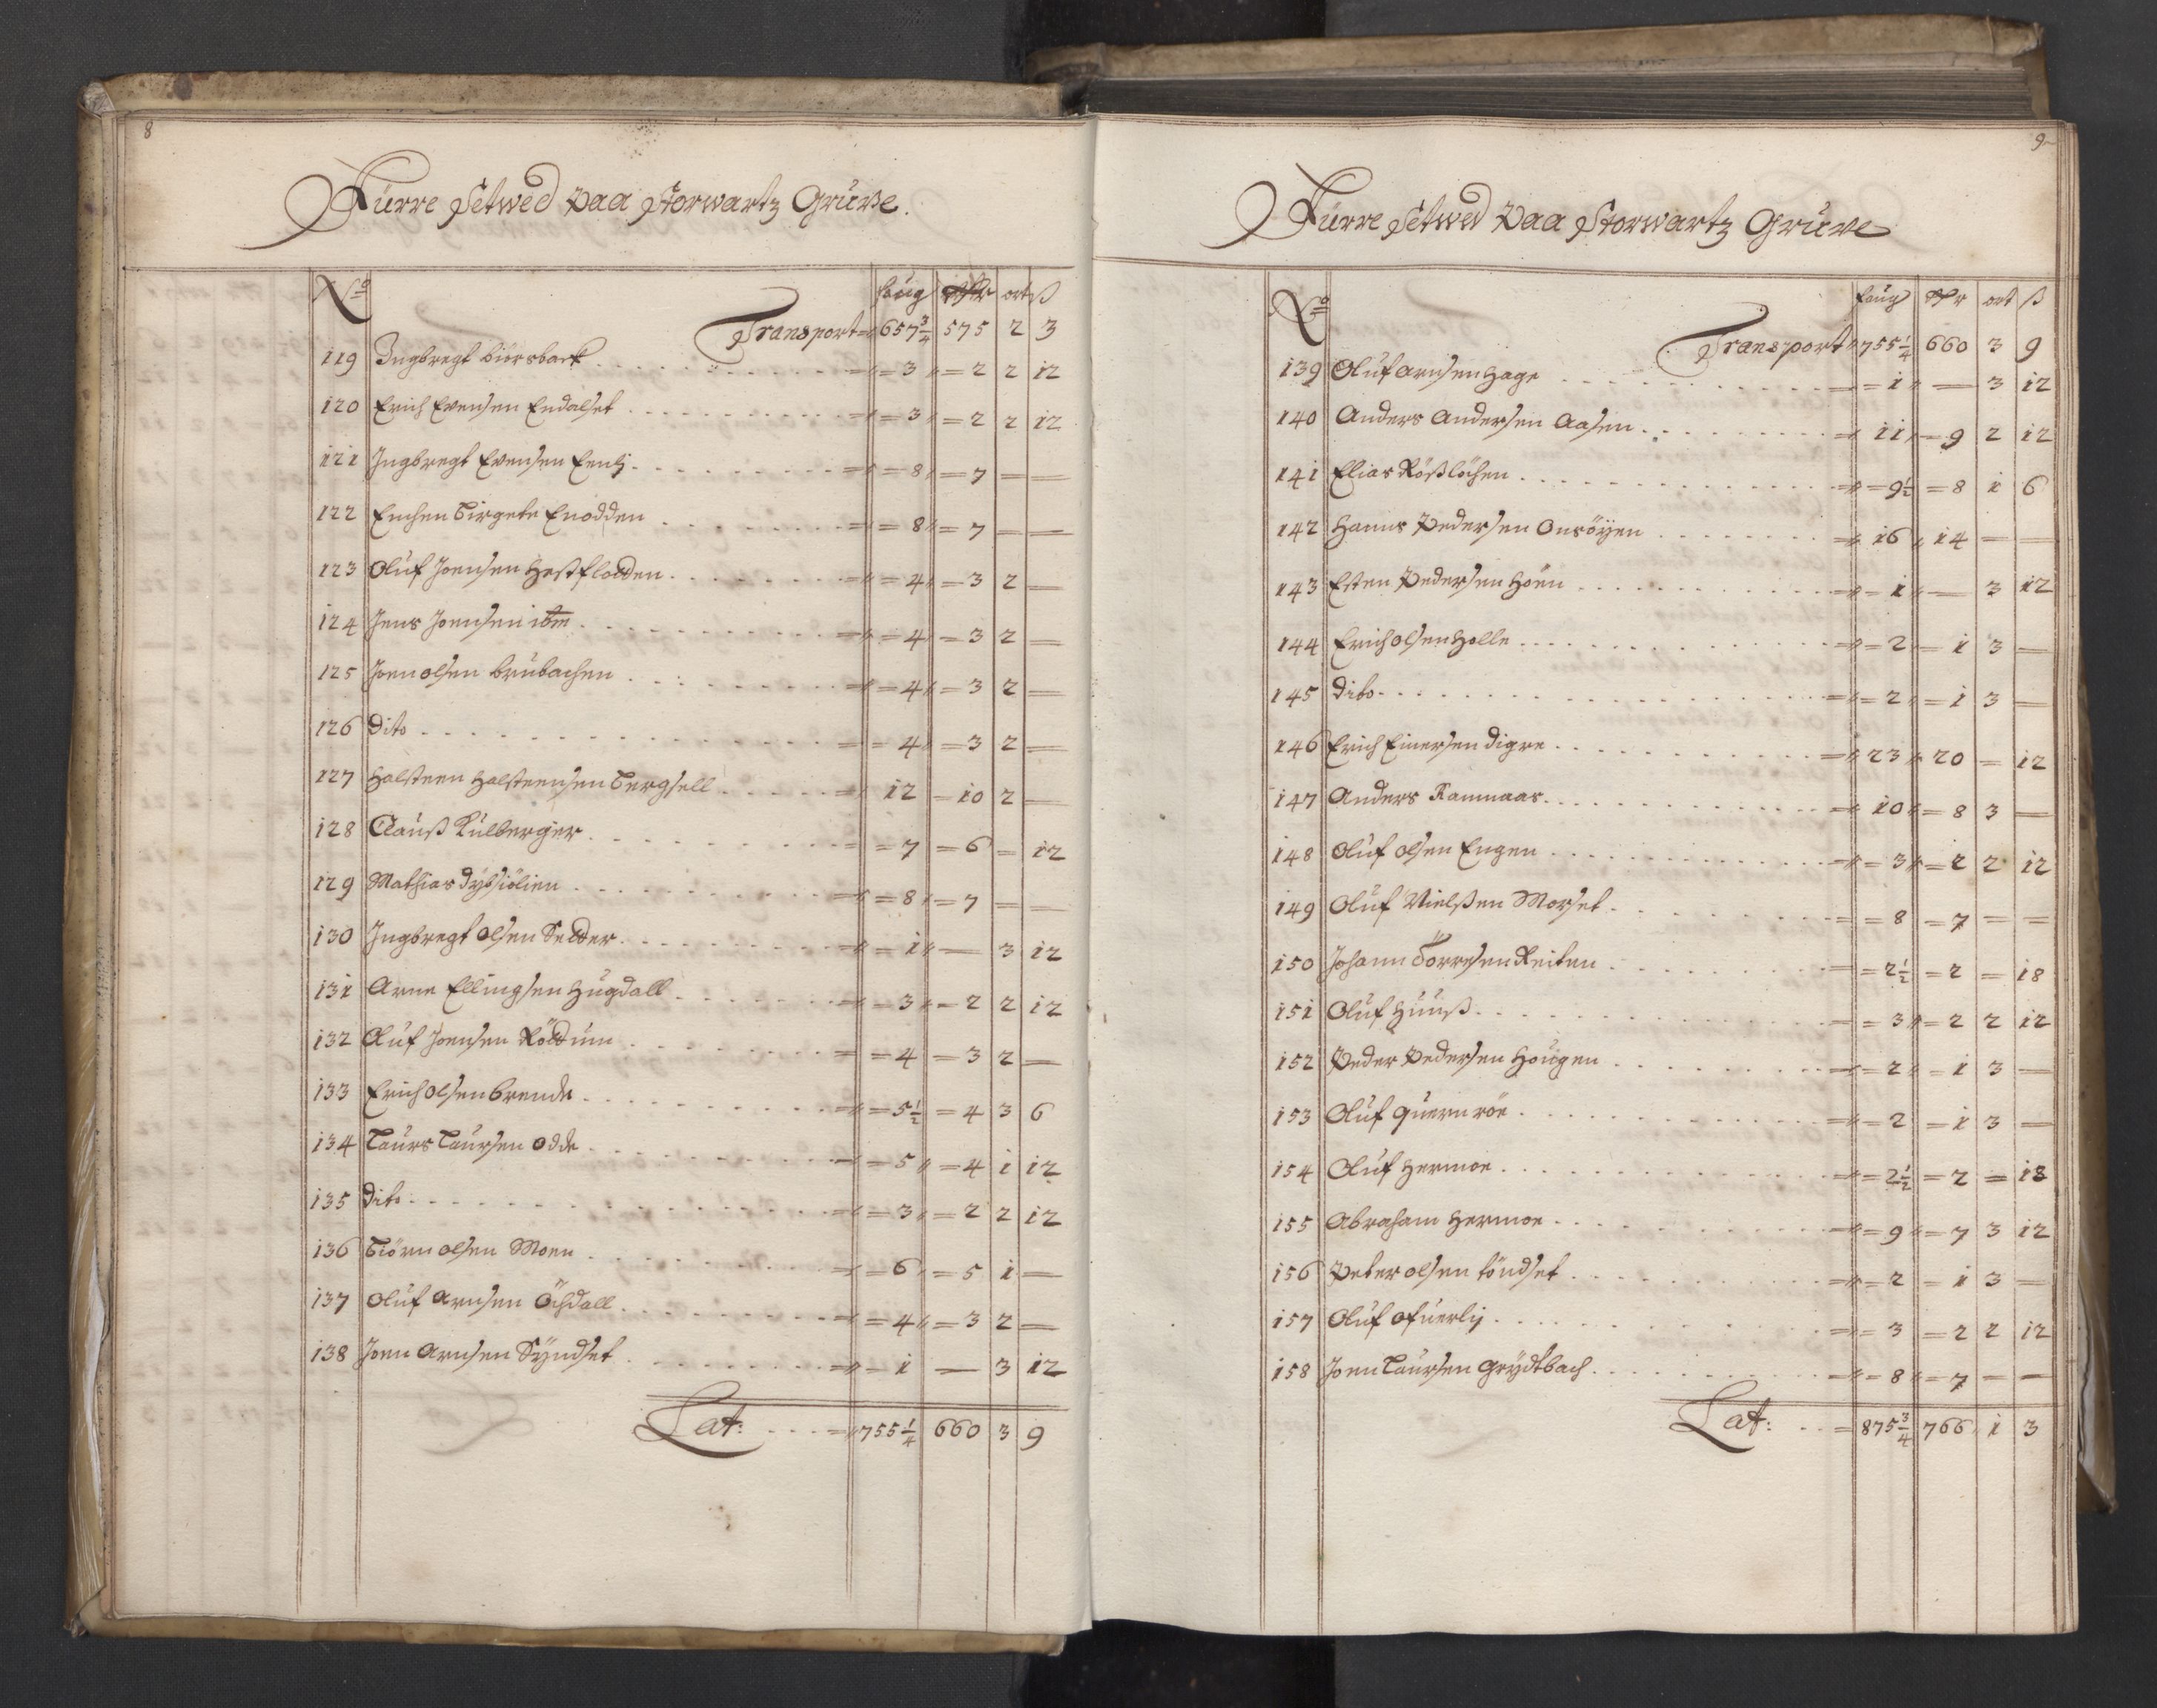 8
Fürre Setwed paa Storwartz Gruve.
No faug Rdr ort ß
Transport 657 3/4 575 2 3
119 Ingbregt biörsback = 3 = 2 2 12
120 Erich Evensen Endalset = 3 = 2 2 12
121 Ingbregt Evensen Eenlj = 8 = 7 — —
122 Enchen Birgete Enodden = 8 = 7 — —
123 Oluf Joensen Hestflodden = 4 = 3 2 —
124 Jens Joensen ibm = 4 = 3 2 —
125 Joen olsen brubachen = 4 = 3 2 —
126 Dito = 4 = 3 2 —
127 Halsteen Halsteensen Bergsell 12 = 10 2 —
128 Clauß Kulberger = 7 = 6 — 12
129 Mathias Dybsiölien = 8 = 7 — —
130 Ingbregt olsen Sedder = 1 — 3 12
131 Arne Ellingsen Hugdall = 3 = 2 2 12
132 Oluf Joensen Röddum = 4 = 3 2 —
133 Erich olsen brende = 5 1/2 = 4 3 6
134 Laurs Laursen Odde = 5 = 4 1 12
135 Dito = 3 = 2 2 12
136 Biörn olsen Moen = 6 = 5 1 —
137 Oluf Arnsen Öchdall = 4 = 3 2 —
138 Joen Arnsen Syndset = 1 — 3 12
Lat: 755 1/4 660 3 9
9
Fürre Setwed paa Storwartz Gruve
No faug Rdr ort ß
Transport 755 1/4 660 3 9
139 Oluf Arnsen Hage = 1 — 3 12
140 Anders Andersen Aasen 11 = 9 2 12
141 Elias Rößlöhen = 9 1/2 = 8 1 6
142 Hanns Pedersen Onsöyen 16 14 — —
143 Esten Pedersen Höen = 1 — 3 12
144 Erich olsen Holle = 2 = 1 3 —
145 Dito = 2 = 1 3 —
146 Erich Einersen Digre 23 20 — 12
147 Anders Kammaas 10 = 8 3 —
148 Oluf olsen Engen = 3 = 2 2 12
149 Oluf Nielßen Morset = 8 = 7 — —
150 Johann Torresen Reiten = 2 1/2 = 2 — 18
151 Oluf Huuß = 3 = 2 2 12
152 Peder Pedersen Hougen = 2 = 1 3 —
153 Oluf quernröe = 2 = 1 3 —
154 Oluf Hermoe = 2 1/2 = 2 — 18
155 Abraham Hermoe = 9 = 7 3 12
156 Peter olsen töndset = 2 = 1 3 —
157 Oluf ofuerlij = 3 = 2 2 12
158 Joen Laursen Grydtbach = 8 = 7 — —
Lat: 875 3/4 766 1 3